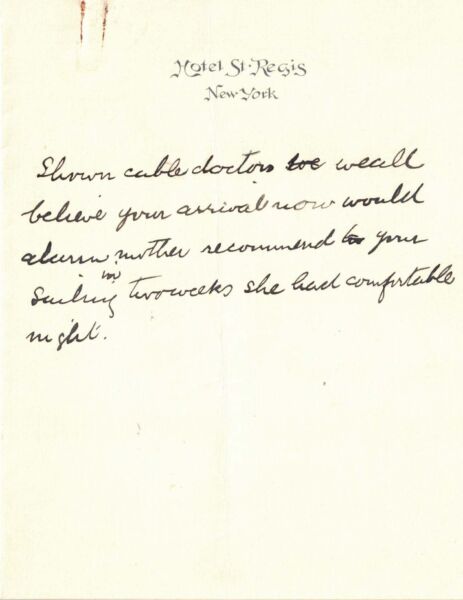 Hotel St. Regis
New York
Shown cable doctors we we all
believe your arrival now would
alarm mother recommend your
sailing in two weeks she had comfortable
night.